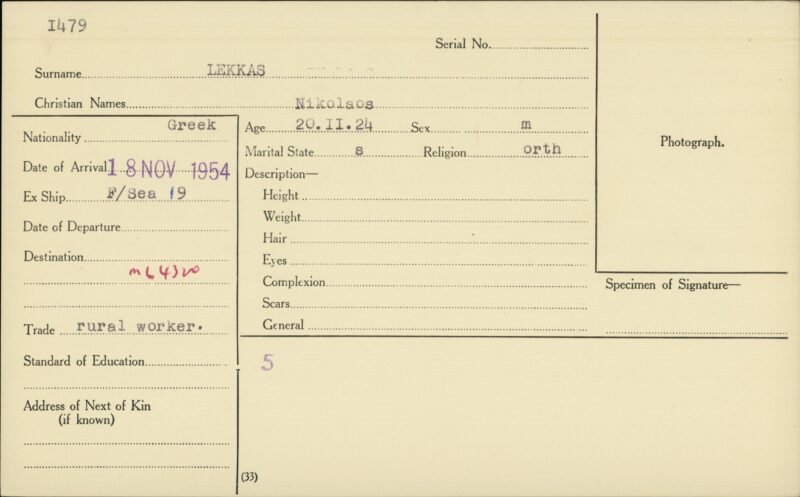 I479
Serial No.
Surname LEKKAS
Christian Names Nikolaos
Nationality Greek
Date of Arrival 18 NOV 1954
Ex Ship F/Sea 19
Date of Departure
Destination
ML4320
Trade rural worker.
Standard of Education
Address of Next of Kin
(if known)
Age 20.II.24 Sex m
Marital State s Religion orth
Description—
Height
Weight
Hair
Eyes
Complexion
Scars
General
Photograph.
Specimen of Signature—
5
(33)